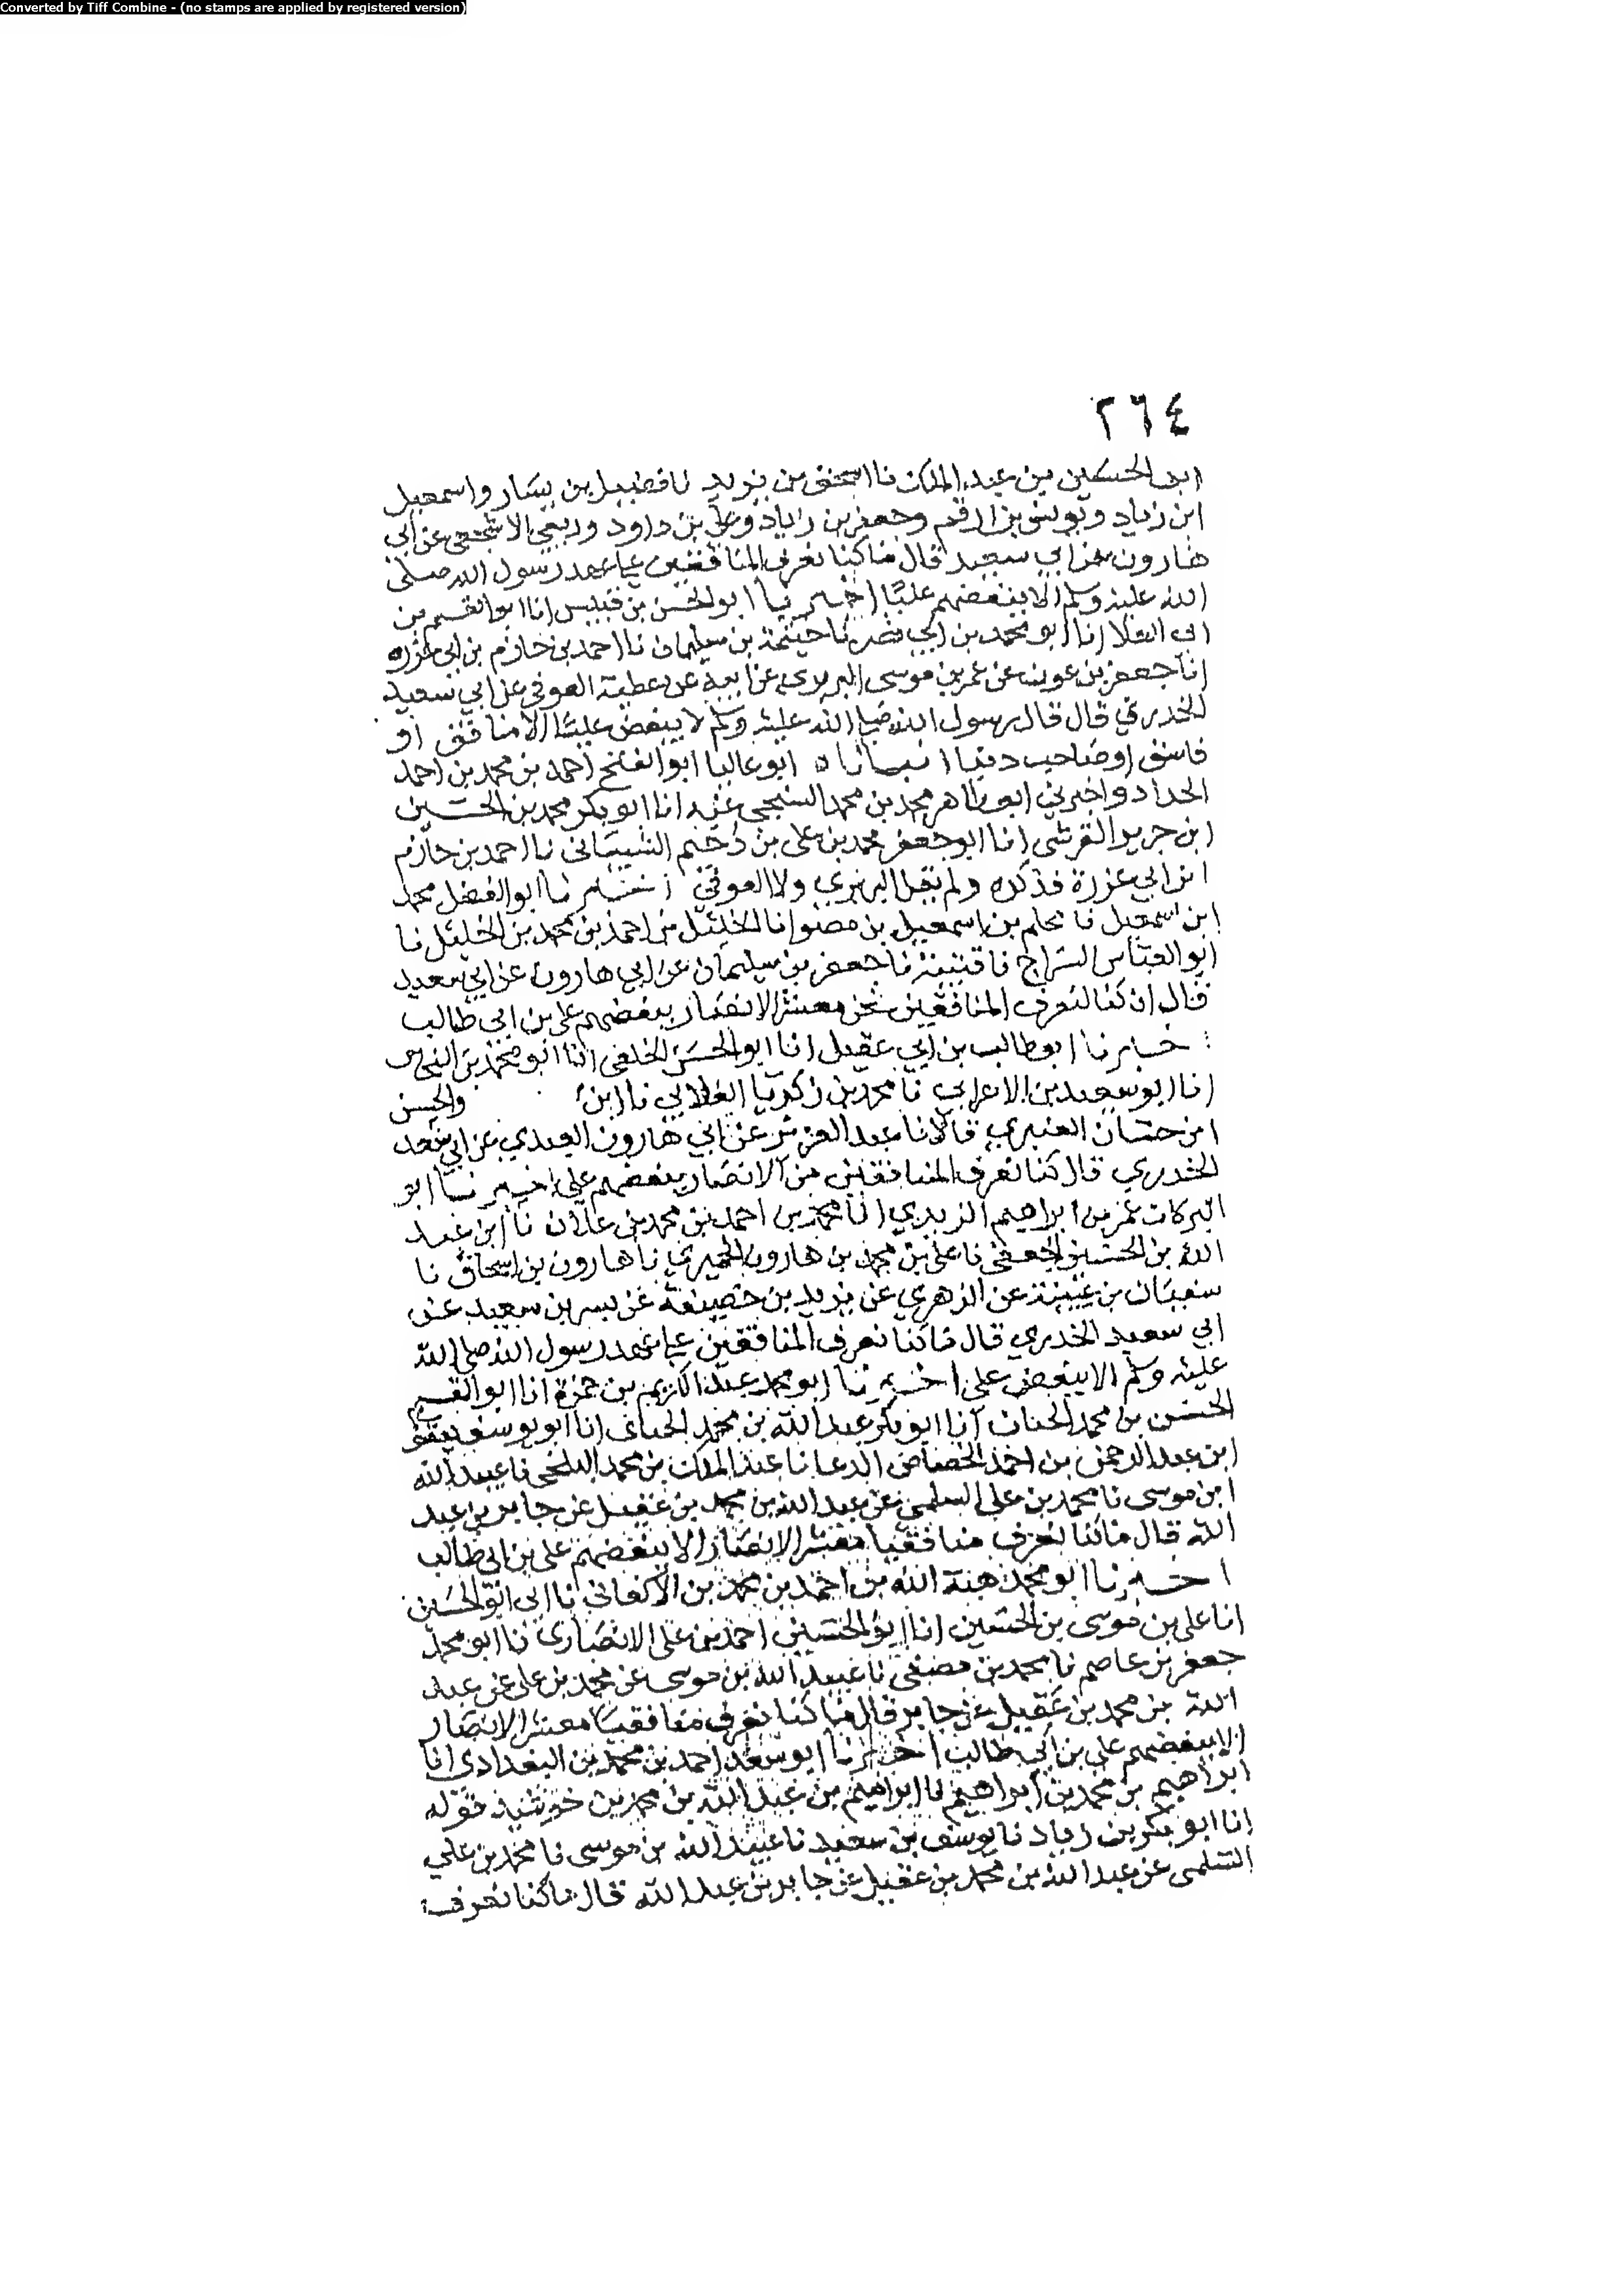 Converted by Tiff Combine - (no stamps are applied by registered version)
٢٦٤
ابو الحسين بن عبد الملك نا اسحق بن يزيد نا فضيل بن يسار واسمعيل
ابن زياد ويونس بن ارقم وجعفر بن زياد وعلي بن داود وربعي الاشجعي عن ابي
هارون عن ابي سعيد قال ما كنا نعرف المنافقين على عهد رسول الله صلى
الله عليه وسلم الا ببغضهم عليا اخبرنا ابو الحسن بن قبيس انا ابو القسم بن
ابي العلا انا ابو محمد بن ابي نصر نا خيثمة بن سليمان نا احمد بن حازم بن ابي غرزه
انا جعفر بن عون عن عمر بن موسى البربري عن ابيه عن عطية العوفي عن ابي سعيد
الخدري قال قال رسول الله صلى الله عليه وسلم لا يبغض عليا الا منافق او
فاسق او صاحب دنيا انبانا ابو الفتح احمد بن محمد بن احمد
الحداد واخبرني ابو طاهر محمد بن محمد السنجي عنه انا ابو بكر محمد بن الحسين
ابن جرير القرشي انا ابو جعفر محمد بن علي بن دحيم الشيباني نا احمد بن حازم
ابن ابي غرزة فذكره ولم يقل البربري ولا العوفي اخبرنا ابو الفضل محمد
ابن اسمعيل نا محلم بن اسمعيل بن مضر انا الخليل بن احمد بن محمد بن الخليل نا
ابو العباس السراج نا قتيبة نا جعفر بن سليمان عن ابي هارون عن ابي سعيد
قال ان كنا لنعرف المنافقين نحن معشر الانصار ببغضهم علي بن ابي طالب
اخبرنا ابو طالب بن ابي عقيل انا ابو الحسن الخلعي انا ابو محمد بن النحاس
انا ابو سعيد بن الاعرابي نا محمد بن زكريا الغلابي نا ابن والحسن
ابن حسان العنبري قالا نا عبد العزيز عن ابي هارون العبدي عن ابي سعيد
الخدري قال كنا نعرف المنافقين من الانصار ببغضهم علي اخبرنا ابو
البركات عمر بن ابراهيم الزيدي انا محمد بن احمد بن محمد بن علان نا ابن عبد
الله بن الحسين الجعفي نا علي بن محمد بن هارون الحميري نا هارون بن اسحاق نا
سفيان بن عيينة عن الزهري عن يزيد بن خصيفة عن بسر بن سعيد عن
ابي سعيد الخدري قال ما كنا نعرف المنافقين على عهد رسول الله صلى الله
عليه وسلم الا ببغض علي اخبرنا ابو محمد عبد الكريم بن حمزة انا ابو القسم
الحسن بن محمد الحنائي انا ابو بكر عبد الله بن محمد الحنائي انا ابو يوسف يعقوب
ابن عبد الرحمن بن احمد الخصاص الدعا نا عبد الملك بن محمد البلخي نا عبيد الله
ابن موسى نا محمد بن علي السلمي عن عبد الله بن محمد بن عقيل عن جابر بن عبد
الله قال ما كنا نعرف منافقينا معشر الانصار الا ببغضهم علي بن ابي طالب
اخبرنا ابو محمد هبة الله بن احمد بن محمد بن الاكفاني نا ابي ابو الحسين
انا علي بن موسى بن الحسين انا ابو الحسين احمد بن علي الانصاري نا ابو محمد
جعفر بن عاصم نا محمد بن مصفى نا عبيد الله بن موسى عن محمد بن علي عن عبد
الله بن محمد بن عقيل عن جابر قال ما كنا نعرف منافقينا معشر الانصار
الا ببغضهم علي بن ابي طالب اخبرنا ابو سعد احمد بن محمد بن البغدادي انا
ابراهيم بن محمد بن ابراهيم نا ابراهيم بن عبد الله بن محمد بن خرشيد قوله
انا ابو بكر بن زياد نا يوسف بن سعيد نا عبيد الله بن موسى نا محمد بن علي
السلمي عن عبد الله بن محمد بن عقيل عن جابر بن عبد الله قال ما كنا نعرف